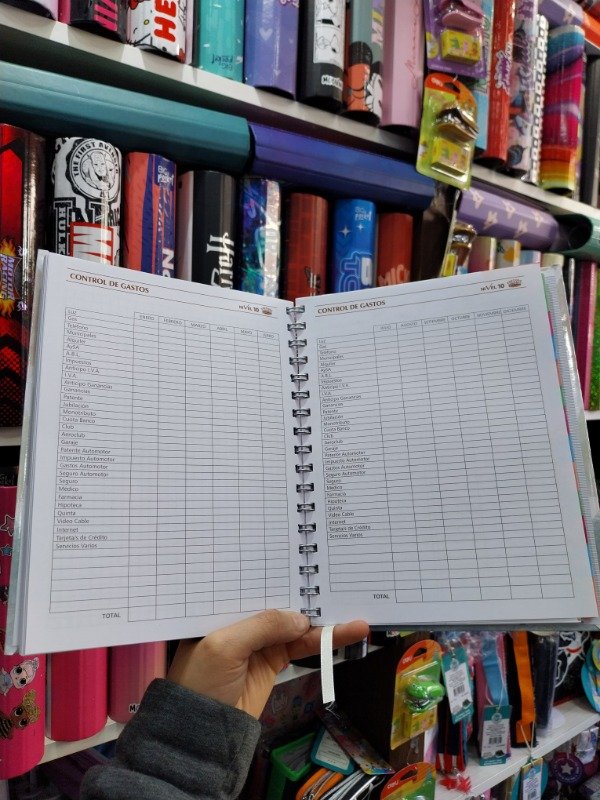 CONTROL DE GASTOS
NIVEL 10
ENERO FEBRERO MARZO ABRIL MAYO JUNIO
Luz
Gas
Teléfono
Municipales
Alquiler
AySA
A.B.L.
Impuestos
Anticipo I.V.A.
I.V.A.
Anticipo Ganancias
Ganancias
Patente
Jubilación
Monotributo
Costo Banco
Club
Aeroclub
Garaje
Patente Automotor
Impuesto Automotor
Gastos Automotor
Seguro Automotor
Seguro
Médico
Farmacia
Hipoteca
Quinta
Video Cable
Internet
Tarjetas de Crédito
Servicios Varios
TOTAL
CONTROL DE GASTOS
NIVEL 10
JULIO AGOSTO SETIEMBRE OCTUBRE NOVIEMBRE DICIEMBRE
Luz
Gas
Teléfono
Municipales
Alquiler
AySA
A.B.L.
Impuestos
Anticipo I.V.A.
I.V.A.
Anticipo Ganancias
Ganancias
Patente
Jubilación
Monotributo
Costo Banco
Club
Aeroclub
Garaje
Patente Automotor
Impuesto Automotor
Gastos Automotor
Seguro Automotor
Seguro
Médico
Farmacia
Hipoteca
Quinta
Video Cable
Internet
Tarjetas de Crédito
Servicios Varios
TOTAL
THE FIRST AVEN
HULK